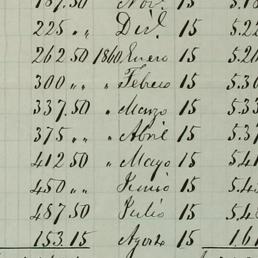 187.50 Nov. 15 5.18
225 „ „ Dic. 15 5.22
262.50 1860, Enero 15 5.26
300 „ „ „ Febrero 15 5.30
337.50 „ Marzo 15 5.33
375 „ „ „ Abril 15 5.37
412.50 „ Mayo 15 5.41
450 „ „ Junio 15 5.4
487.50 Julio 15 5.4
153.15 Agosto 15 1.61